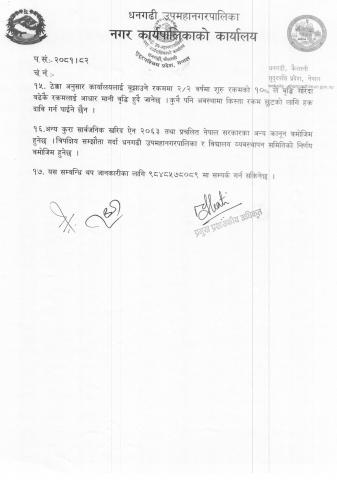 धनगढी उपमहानगरपालिका
नगर कार्यपालिकाको कार्यालय
सुदूरपश्चिम प्रदेश, नेपाल
प.सं:-२०८१।८२
च.नं:-
धनगढी, कैलाली
सुदूरपश्चिम प्रदेश, नेपाल
१५. ठेक्का अनुसार कार्यालयलाई बुझाउने रकममा २/२ वर्षमा शुरु रकमको १०% ले वृद्धि गरिदा
बढेकै रकमलाई आधार मानी वृद्धि हुदै जानेछ ।कुनै पनि अवस्थामा किस्ता रकम छुटको लागि हक
दावि गर्न पाईने छैन ।
१६.अन्य कुरा सार्वजनिक खरिद ऐन २०६३ तथा प्रचलित नेपाल सरकारका अन्य कानून वमोजिम
हुनेछ ।त्रिपक्षिय सम्झौता गर्दा धनगढी उपमहानगरपालिका र विद्यालय व्यवस्थापन समितिको निर्णय
वमोजिम हुनेछ ।
१७. यस सम्वन्धि थप जानकारीका लागि ९८४८५७८०८९ मा सम्पर्क गर्न सकिनेछ ।
प्रमुख प्रशासकीय अधिकृत